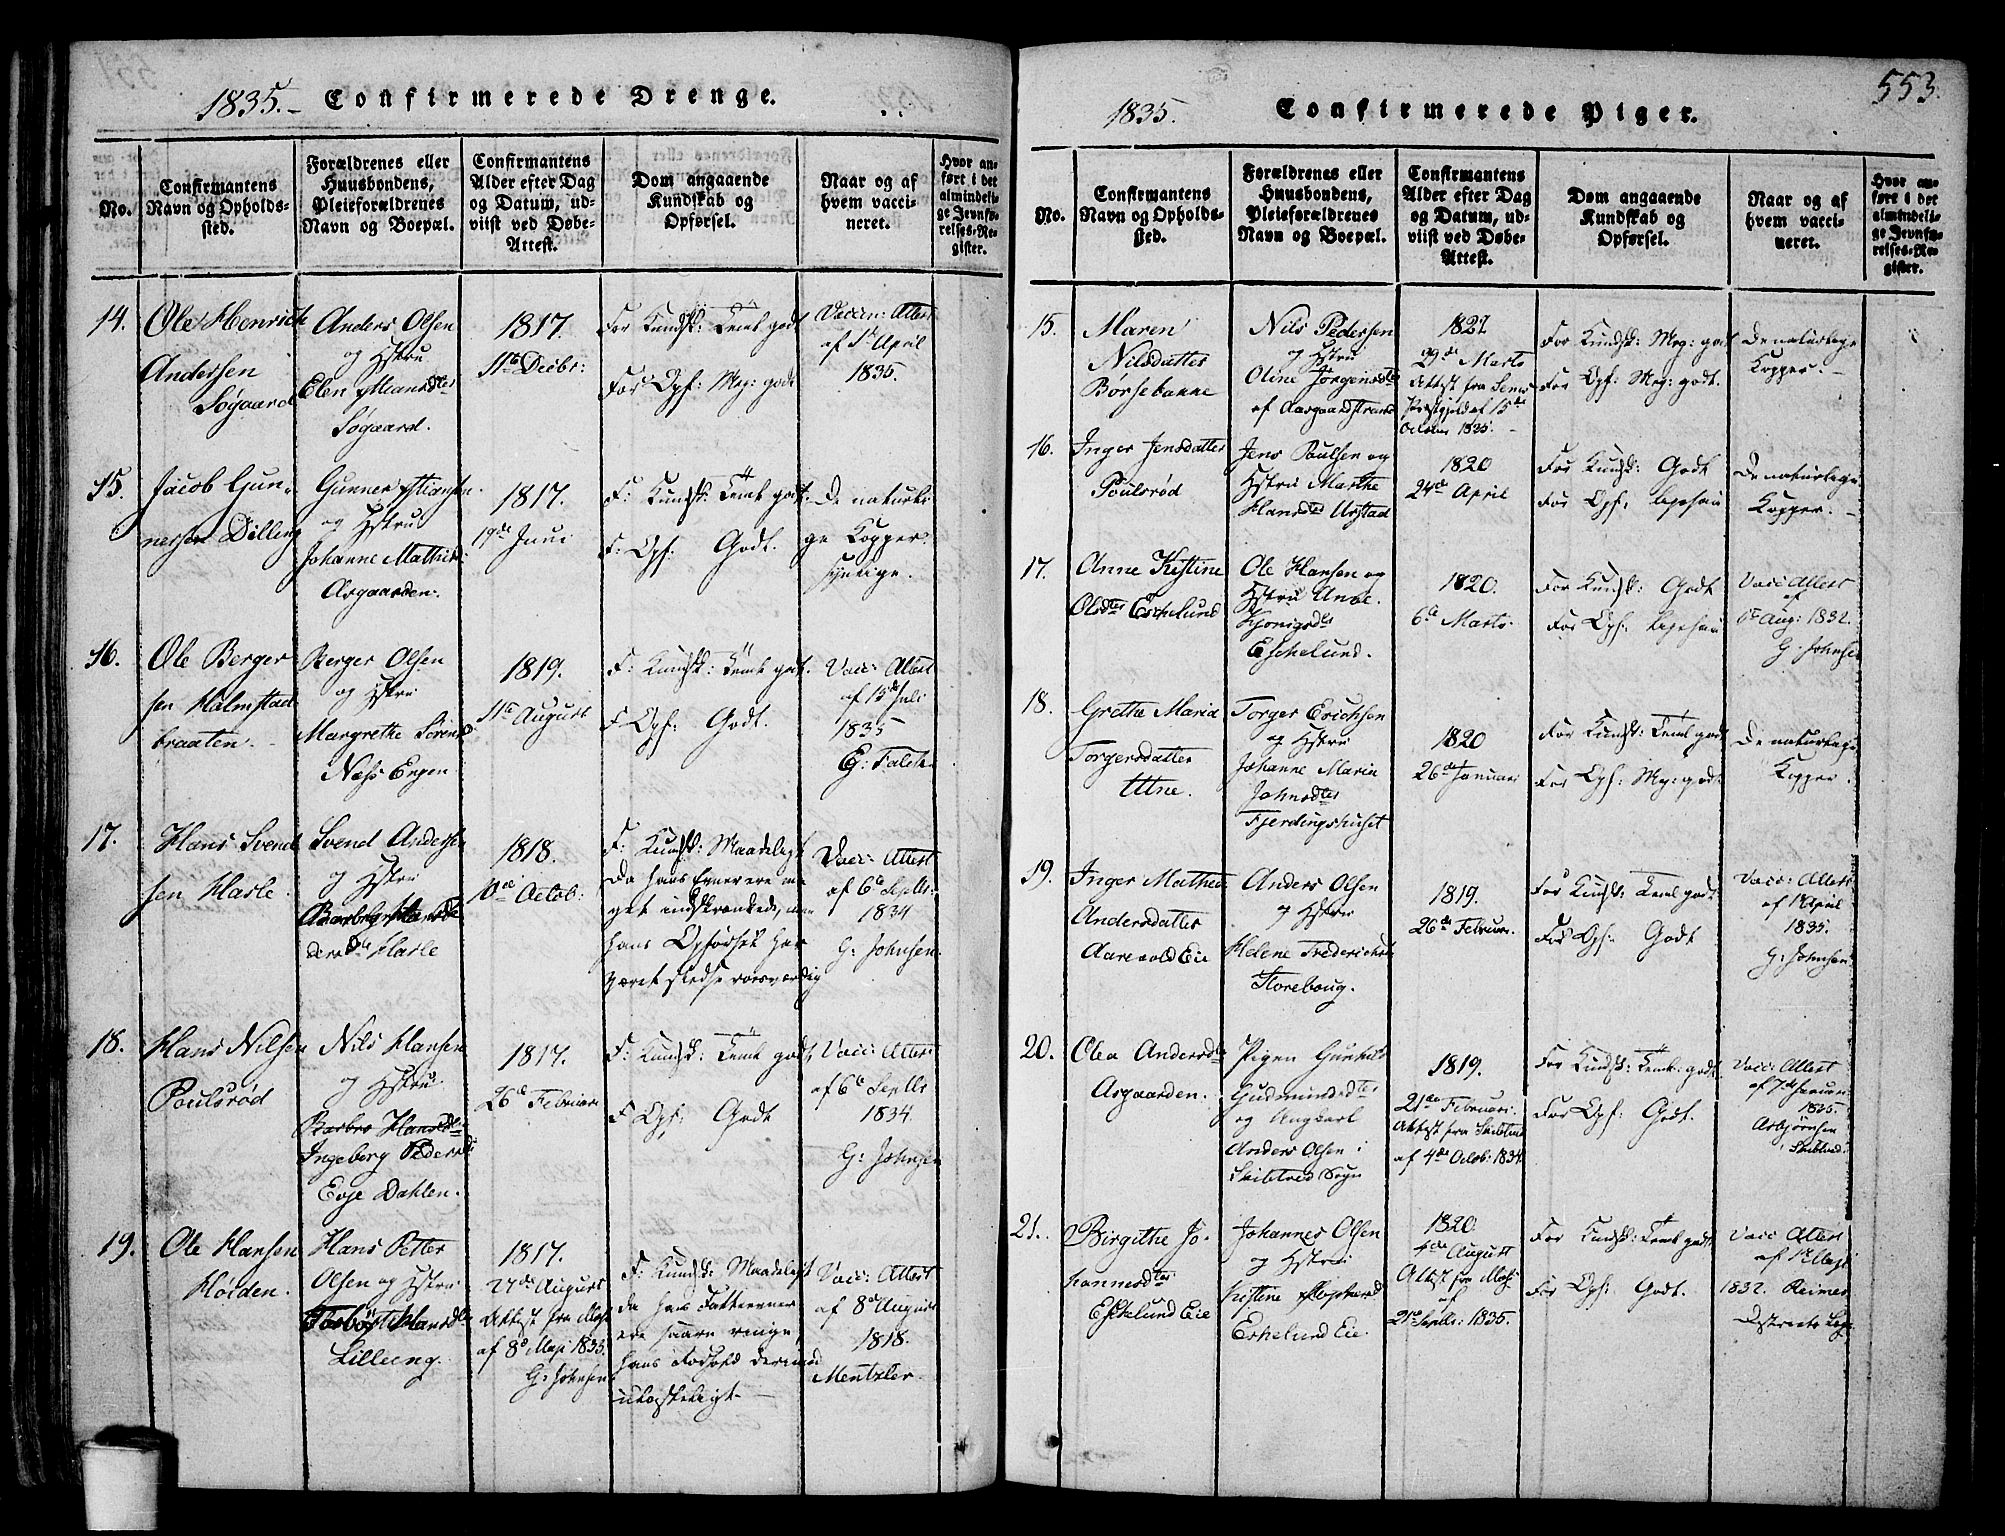 1835. Confirmerede Drenge.
No.
Confirmantens
Navn og Opholds-
sted.
Forældrenes eller
Huusbondens,
Pleieforældrenes
Navn og Boepæl.
Confirmantens
Alder efter Dag
og Datum, ud-
viist ved Døbe-
Attest.
Dom angaaende
Kundskab og
Opførsel.
Naar og af
hvem vacci-
neret.
Hvor an-
ført i det
almindeli-
ge Jevnfø-
relses-Re-
gister.
14.
Ole Henrich
Andersen
Søgaard
Anders Olsen
og Hstru
Elen
Søgaard.
1817.
11te Decbr:
For Kundsk: Teml godt
For Opf: Meg: godt
Vaccn: Attest
af 1ste April
1835.
15.
Jacob Gun-
nersen Dilling
Gunner
og Hstru
Johanne
Asgaarden.
1817.
19de Juni
F: Kundsk: Teml godt
F: Opf: Godt.
De naturli
ge Kopper
synlige.
16.
Ole Berger
sen Halmstad
braaten.
Berger Olsen
og Hstru
Margrethe Sørens
Næss Engen
1819.
11te August
F: Kundsk: Teml godt.
F Opf: Godt.
Vacc: Attest
af 15de Juli
1835
17.
Hans Svend
sen Karle.
Svend Andersen
og Hstru
1818.
10de Octob:
F: Kundsk: Maadeligt
Da hans Evner ere me
get indskrænkede, men
hans Opførsel har
været stedse roesværdig
Vacc: Attest
af 6te Septbr:
1834
G: Johnsen.
18.
Hans Nilsen
Poulsrød
Nils Hansen
og Hstru
Barbro Hansdtr
Ingeberg Pedersd
Evje Dahlen.
1817.
26de Februari
F: Kundsk: Teml godt
F Opf: Godt
Vacc: Attest
af 6te Septbr
1834
G: Johnsen
19.
Ole Hansen
Høiden.
Hans Petter
Olsen og Hstru
1817.
27de August
Attest fra Moss
af 8de Maji 1835.
G: Johnsen
F: Kundsk: Maadeligt
da hans Fatteevner
ere saare ringe,
hans Forhold derimod
ulasteligt.
Vacc: Attest
af 8de August
1818.
Mentzler.
553.
1835. Confirmerede Piger.
No.
Confirmantens
Navn og Opholds-
sted.
Forældrenes eller
Huusbondens,
Pleieforældrenes
Navn og Boepæl.
Confirmantens
Alder efter Dag
og Datum, ud-
viist ved Døbe-
Attest.
Dom angaaende
Kundskab og
Opførsel.
Naar og af
hvem vacci-
neret.
Hvor an-
ført i det
almindeli-
ge Jevnfø-
relses-Re-
gister.
15.
Maren
Nilsdatter
Børsebanne
Nils Pedersen
og Hstru
Oline Jørgensdtr
af Aasgaardstrand
29de Marts
Attest fra Sems
Præstgjeld af 15de
October 1835.
For Kundsk: Meg: godt
For Opf: Meg: godt.
De naturlige
Kopper.
16.
Inger Jensdatter
Poulsrød
Jens Poulsen og
Hstru Marthe
Hansdtr Urstad
1820
24de April
For Kundsk: Godt
For Opf:
De naturlige
Kopper.
17.
Anne Kistine
Olsdtr Eskelund
Ole Hansen og
Hstru Anne
Eskelund.
1820.
6te Marts
For Kundsk: Godt
For Opf:
Vacc: Attest
af
6te Aug: 1832.
G: Johnsen
18.
Grethe Maria
Torgersdatter
Utne.
Torger Erichsen
og Hstru
Johanne Maria
Johnsdtr
Fjerdingshuset
1820
26de Januari
For Kundsk: Teml godt
For Opf: Meg: godt.
De naturlige
Kopper.
19.
Inger Mathea
Andersdatter
Aarevold Eie
Anders Olsen
og Hstru
Helene Frederichs
Storebaug.
1819.
26de Februar.
For Kundsk: Teml godt
For Opf: Godt
Vacc: Attest
af 1ste April
1835.
G: Johnsen
20.
Olea Andersdtr
Asgaarden.
Pigen Gunhild
Gudmundsdtr
og Ungkarl
Anders Olsen i
Skibtved Sogn
1819.
21de Februari.
Attest fra Skibtved
af 4de Octob: 1834
For Kundsk: Teml: godt.
For Opf: Godt.
Vacc: Attest
af 7de Januari
1835.
Asbjørnsen
Skibtved
21.
Birgithe Jo-
hannesdtr
Eskelund Eie
Johannes Olsen
og Hstru
Kistine
Eskelund Eie.
1820
4de August
Attest fra Moss
af
21de Septbr: 1835.
For Kundsk: Teml godt
For Opf: Godt.
Vacc: Attest
af 1ste Maji
1832. Reimers
Districts Læge